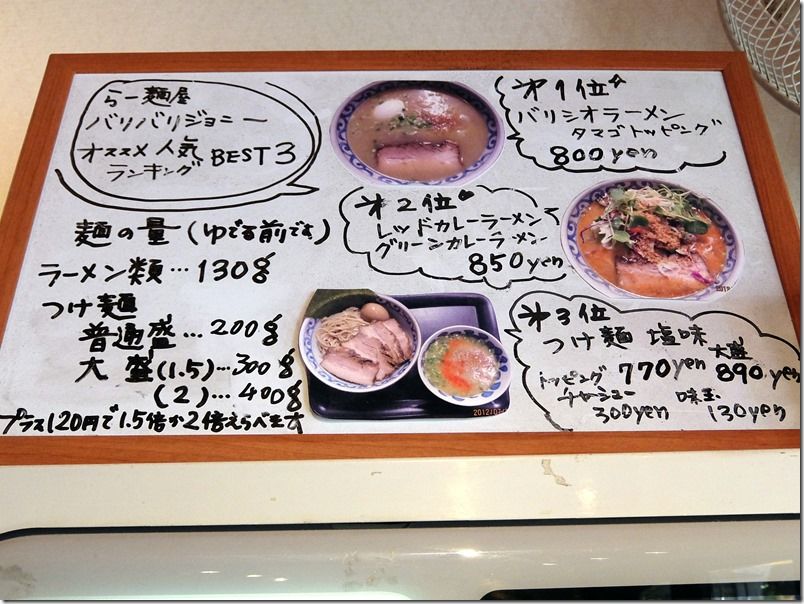 らー麺屋
バリバリジョニー
オススメ人気
ランキング BEST3
麺の量(ゆでる前です)
ラーメン類…130g
つけ麺
普通盛…200g
大盛(1.5)…300g
(2)…400g
プラス120円で1.5倍か2倍えらべます
第1位
バリシオラーメン
タマゴトッピング
800yen
第2位
レッドカレーラーメン
グリーンカレーラーメン
850yen
第3位
つけ麺 塩味
770yen
大盛
890yen
トッピング
チャーシュー
300yen
味玉
130yen